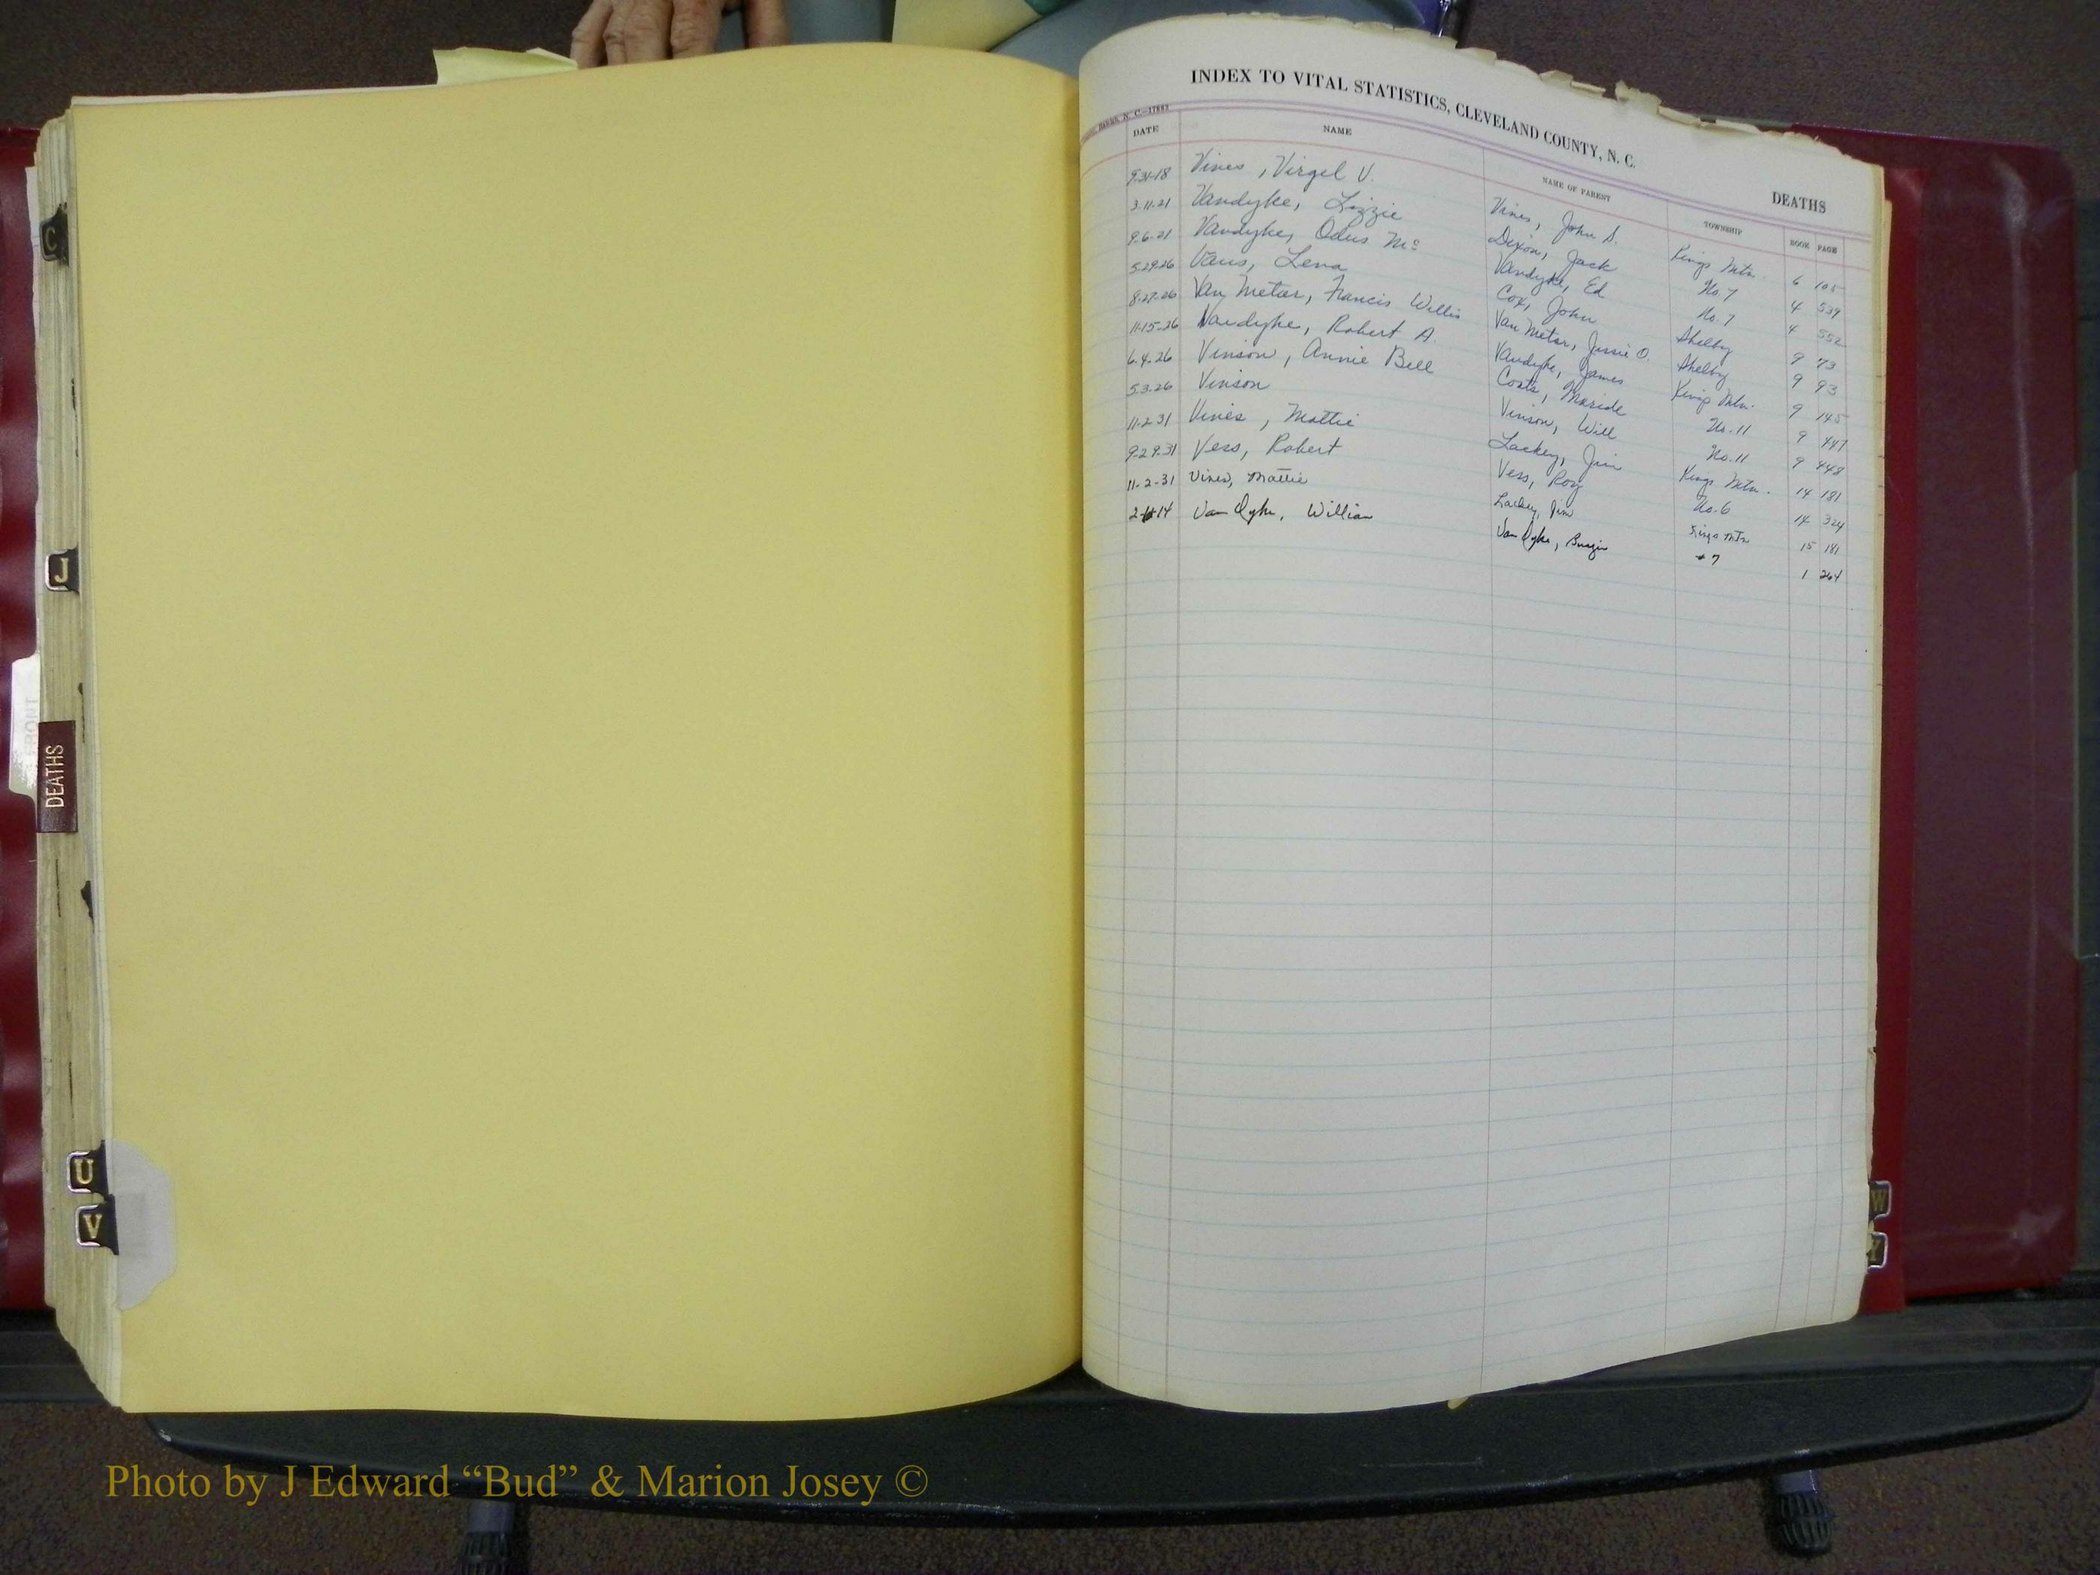 INDEX TO VITAL STATISTICS, CLEVELAND COUNTY, N. C.
DEATHS
DATE NAME NAME OF PARENT TOWNSHIP BOOK PAGE
9-31-18 Vines, Virgel V. Vines, John S. Kings Mtn 6 105
3-11-21 Vandyke, Lizzie Dixon, Jack No. 7 4 539
9-6-21 Vandyke, Odus Mc Vandyke, Ed No. 7 4 552
5-29-26 Vaus, Lena Cox, John Shelby 9 73
8-27-26 Van Metar, Francis Willis Van Metar, Jessie O. Shelby 9 93
11-15-26 Vandyke, Robert A. Vandyke, James Kings Mtn. 9 145
6-4-26 Vinson, Annie Bell Coats, No. 11 9 447
5-3-26 Vinson Vinson, Will No. 11 9 448
11-2-31 Vines, Mattie Lackey, Jim Kings Mtn. 14 181
9-29-31 Vess, Robert Vess, Roy No. 6 14 324
11-2-31 Vines, Mattie Lackey, Jim Kings Mtn 15 181
2 14 Van Dyke, William Van Dyke, #7 1 264
C
J
DEATHS
U
V
W
Photo by J Edward “Bud” & Marion Josey ©